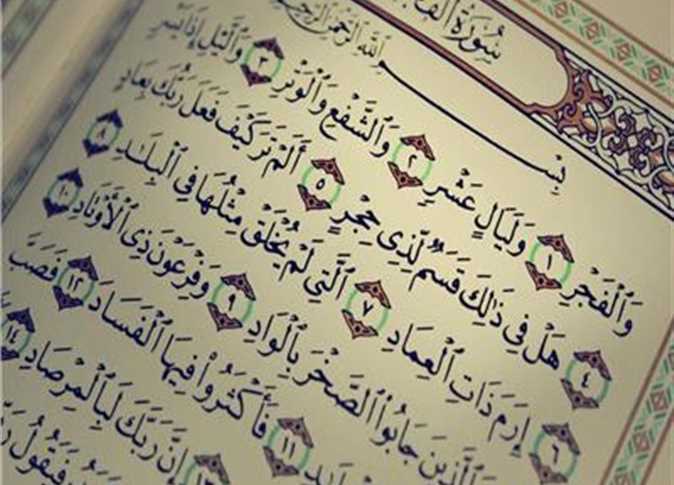 سُورَةُ الفَ
بِسْـــــمِ ٱللَّهِ ٱلرَّحْمَٰنِ ٱلرَّحِيمِ
وَٱلْفَجْرِ ١ وَلَيَالٍ عَشْرٍ ٢ وَٱلشَّفْعِ وَٱلْوَتْرِ ٣ وَٱلَّيْلِ إِذَا يَسْرِ
٤ هَلْ فِي ذَٰلِكَ قَسَمٌ لِّذِي حِجْرٍ ٥ أَلَمْ تَرَ كَيْفَ فَعَلَ رَبُّكَ بِعَادٍ
٦ إِرَمَ ذَاتِ ٱلْعِمَادِ ٧ ٱلَّتِي لَمْ يُخْلَقْ مِثْلُهَا فِي ٱلْبِلَٰدِ ٨
ٱلَّذِينَ جَابُوا۟ ٱلصَّخْرَ بِٱلْوَادِ ٩ وَفِرْعَوْنَ ذِي ٱلْأَوْتَادِ ١٠
١١ فَأَكْثَرُوا۟ فِيهَا ٱلْفَسَادَ ١٢ فَصَبَّ
إِنَّ رَبَّكَ لَبِٱلْمِرْصَادِ ١٤
فَيَقُولُ